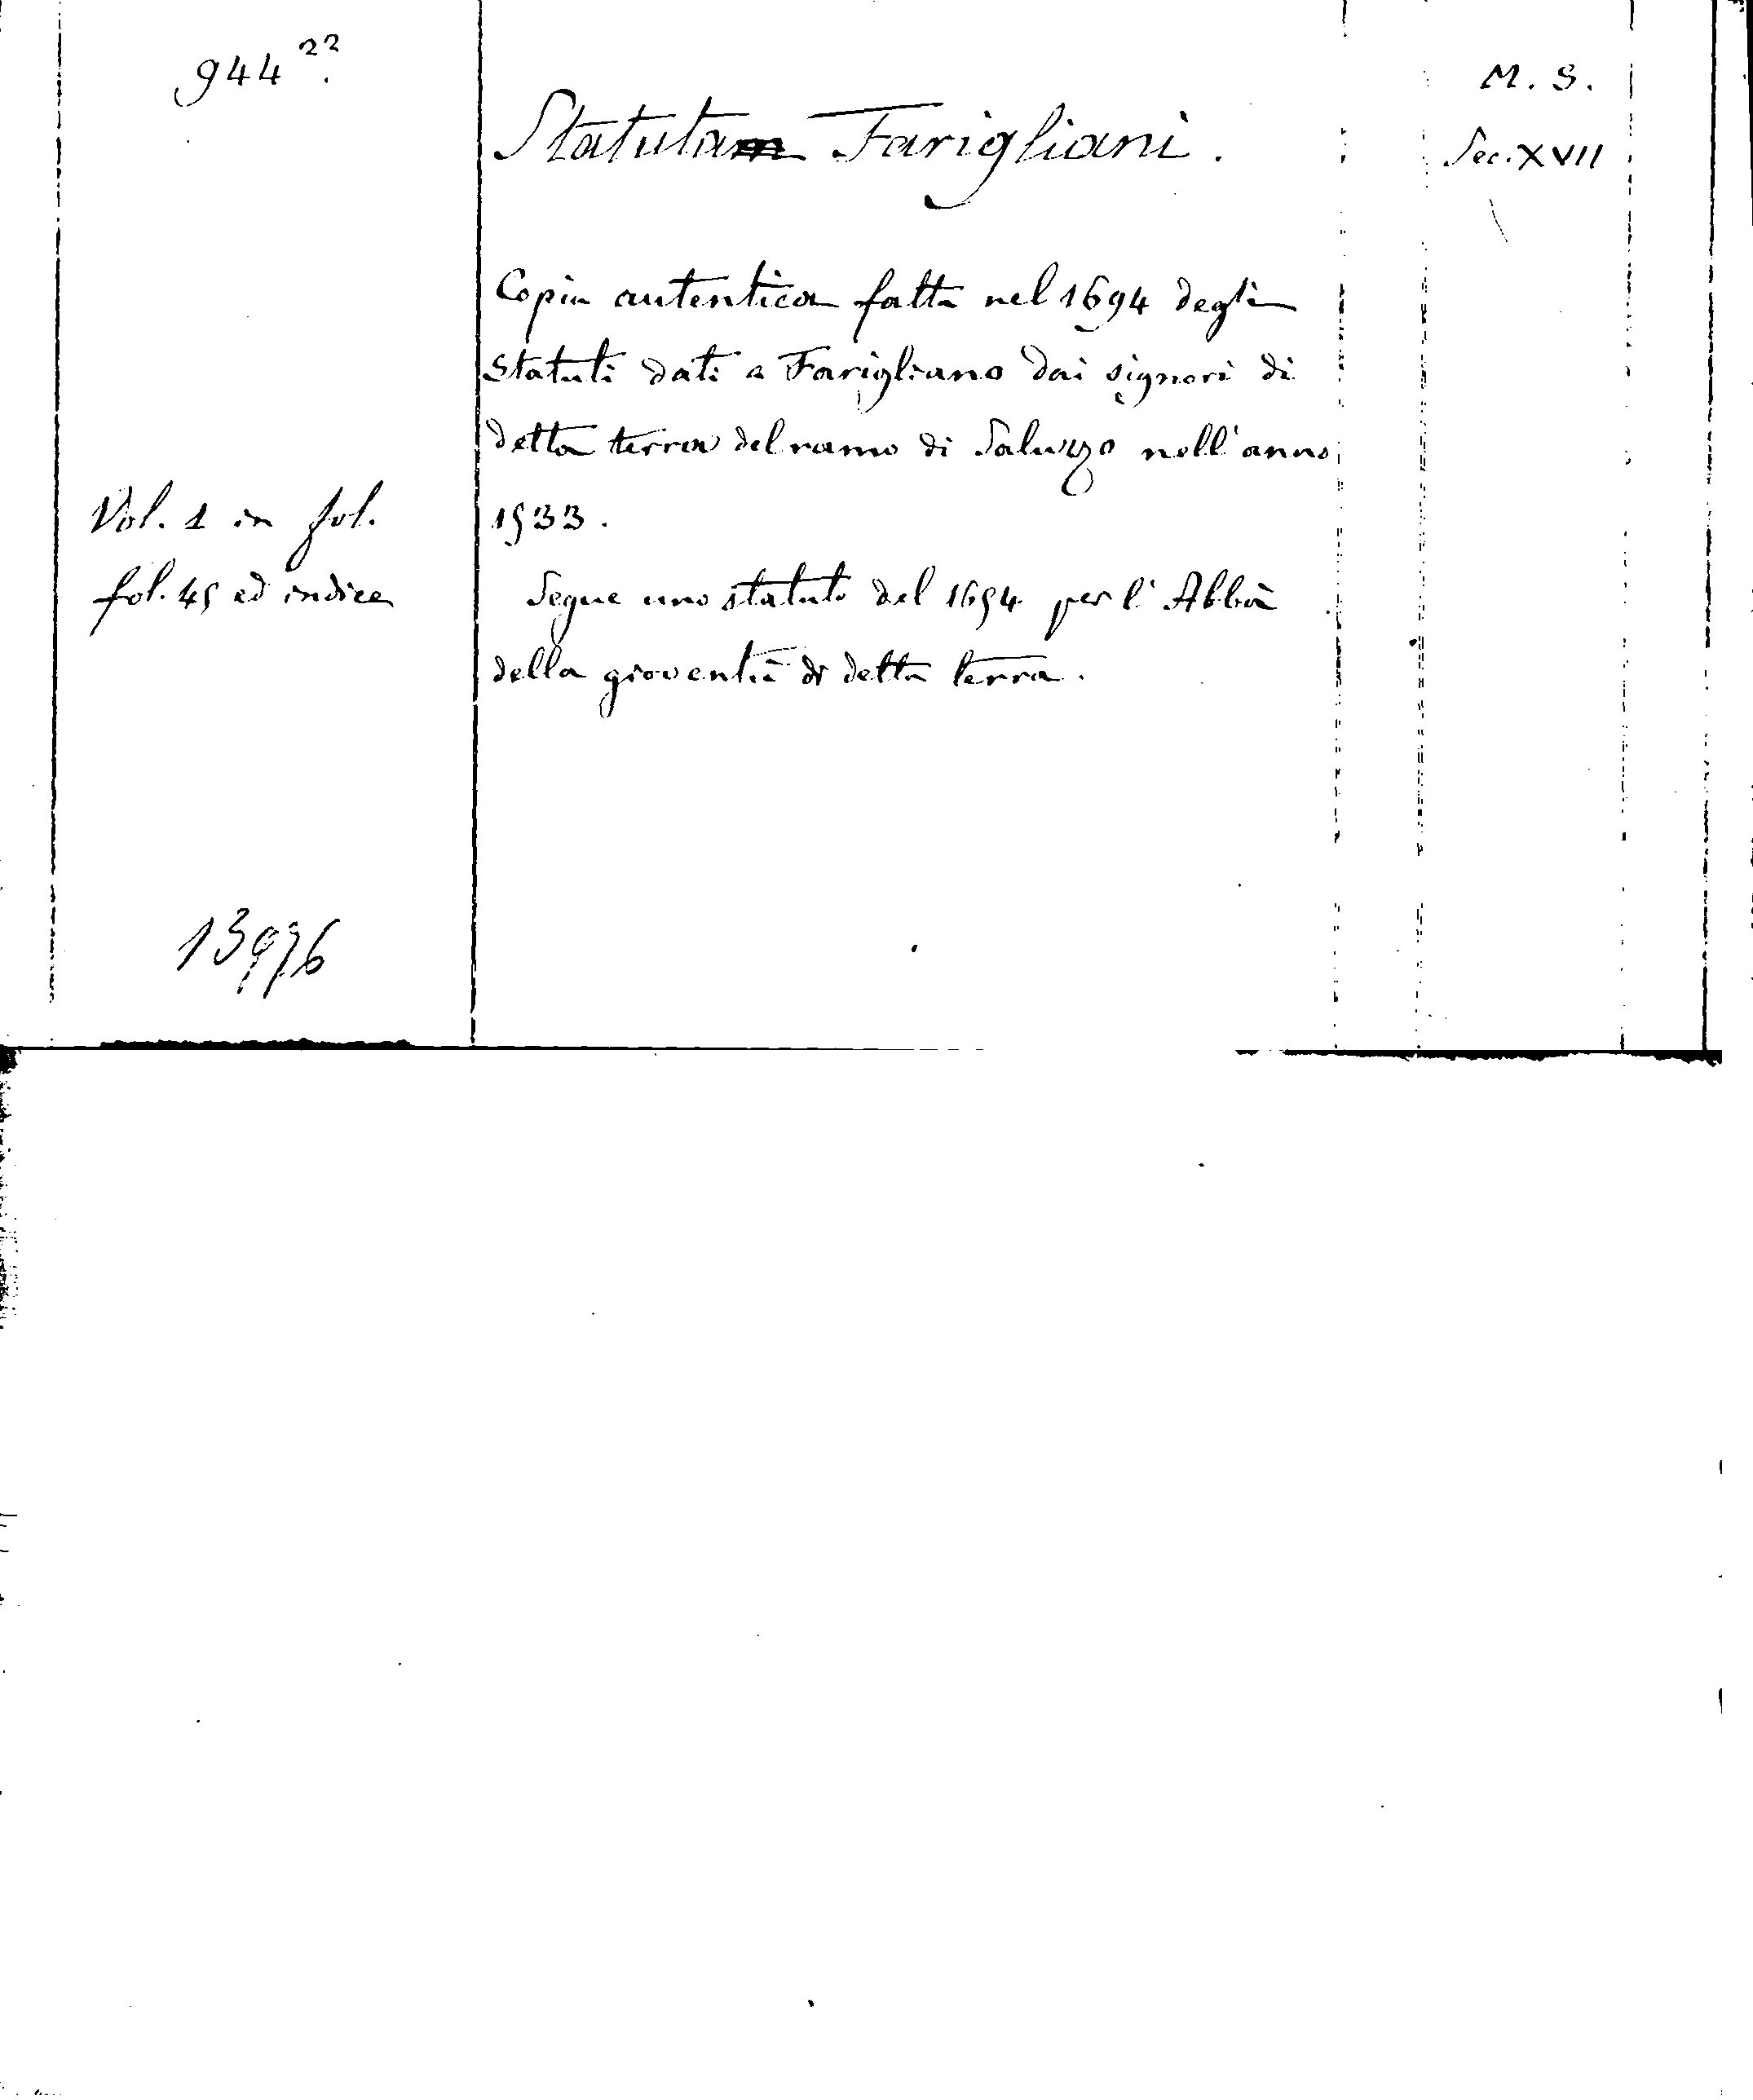 944²².
M. S.
Statuta Farigliani.
Sec. XVII
Copia autentica fatta nel 1694 degli
Statuti dati a Farigliano dai signori di
detta terra del ramo di Saluzzo nell'anno
1533.
Vol. 1 in fol.
fol. 45 ed indice
Segue uno statuto del 1694 per l'Abbà
della gioventù di detta terra.
13996